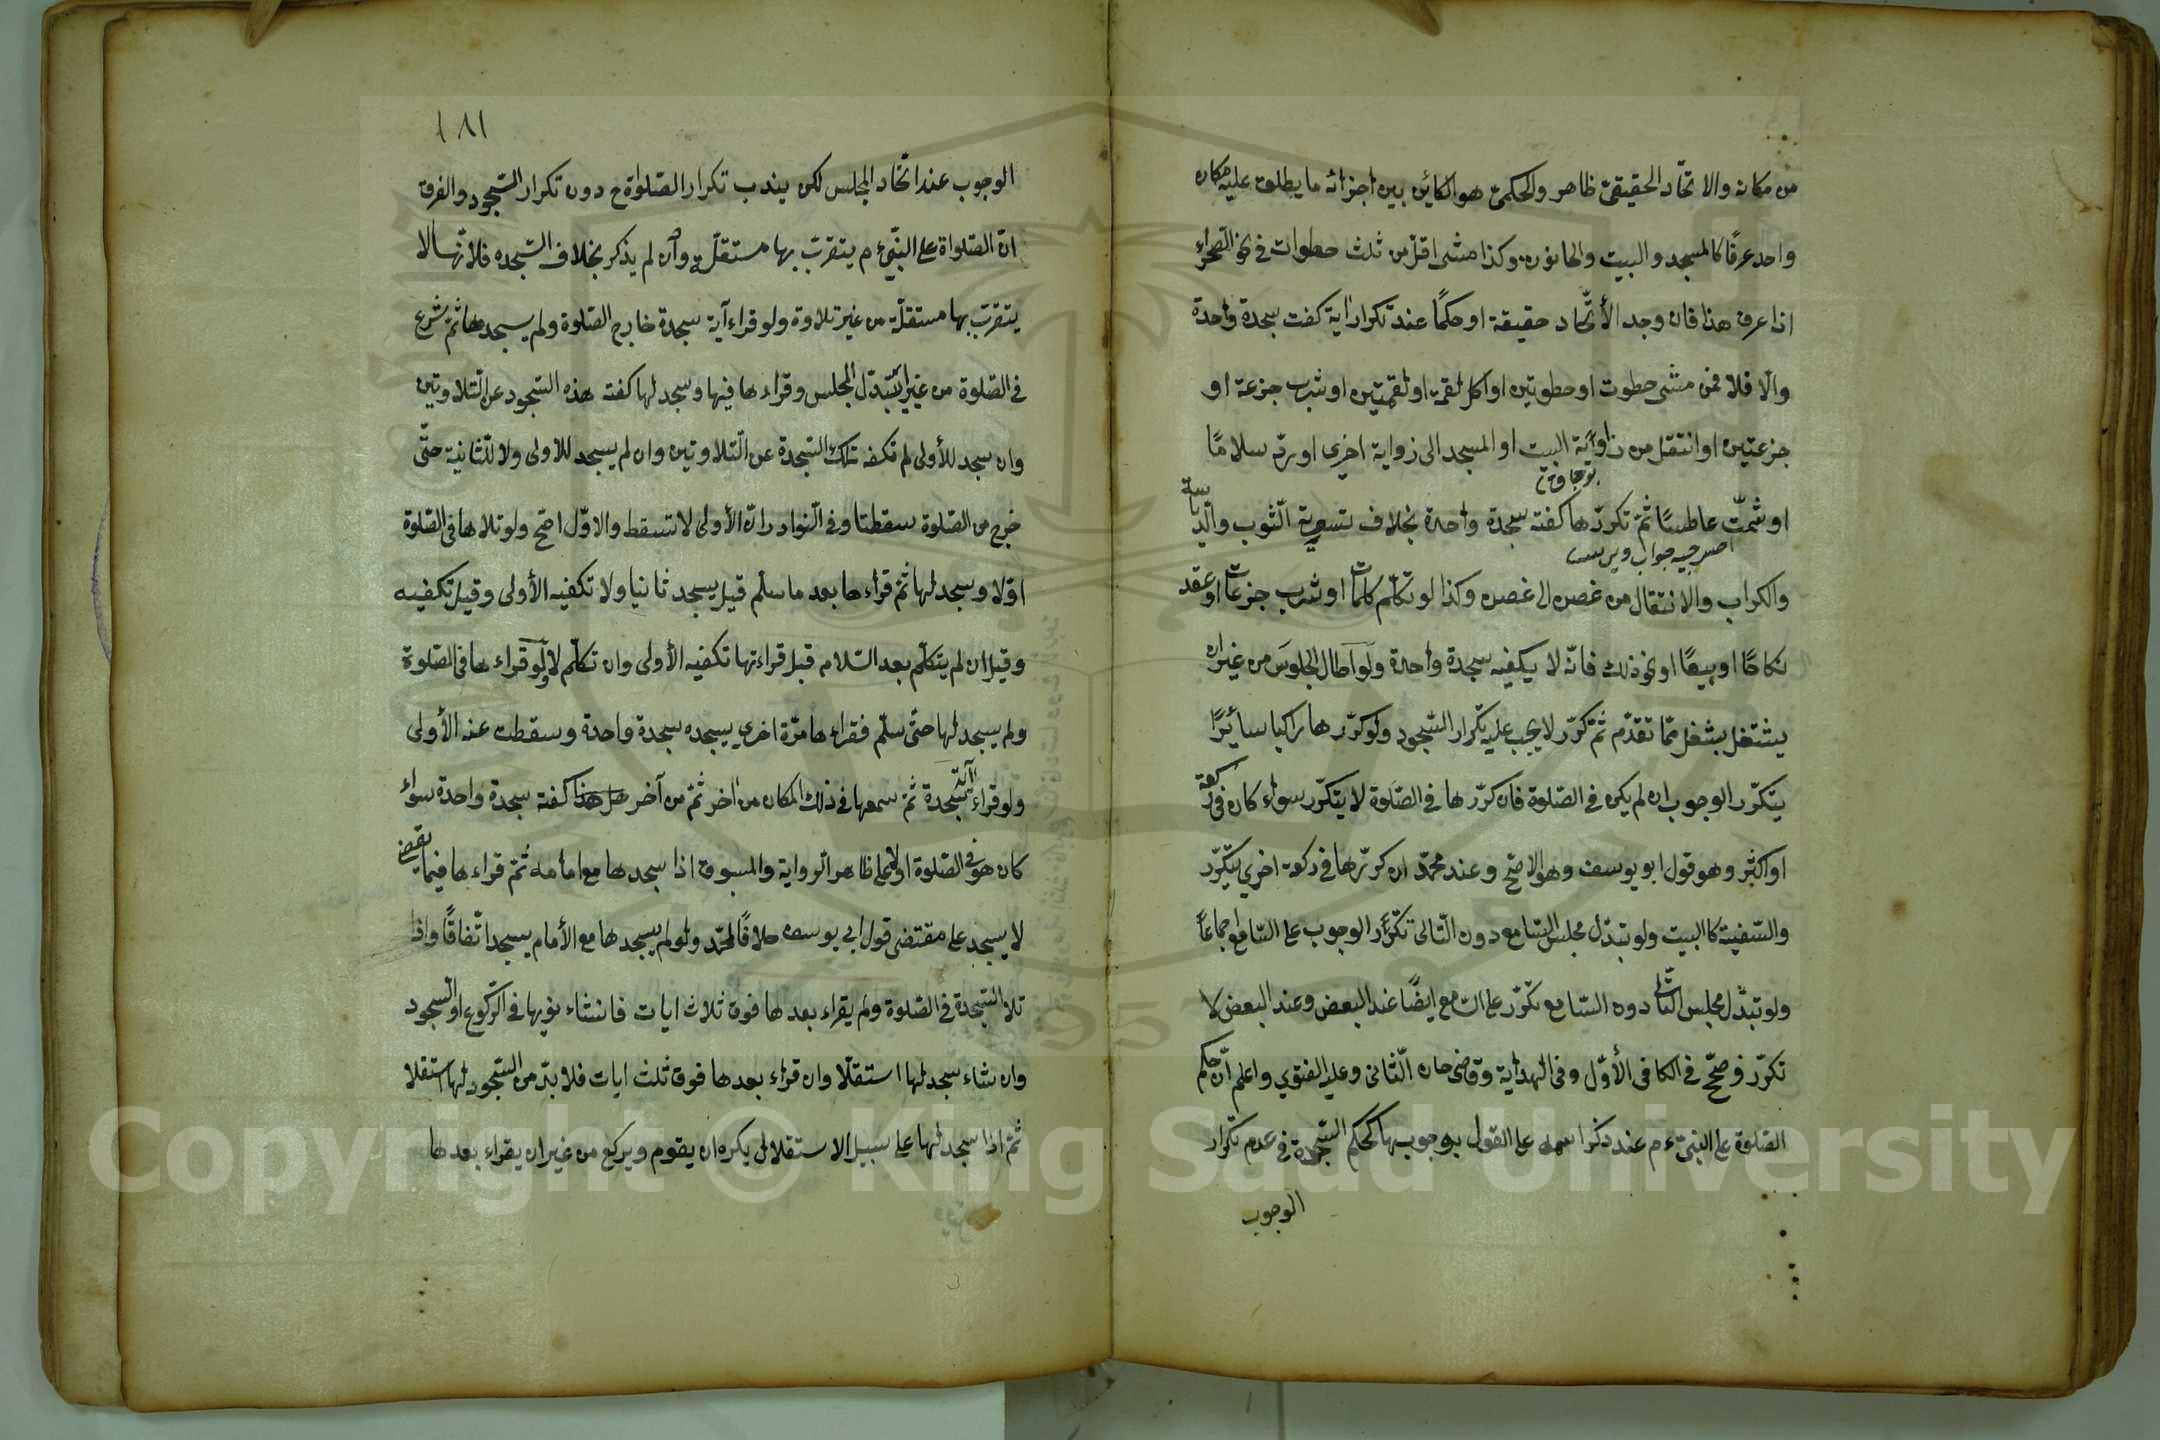 من مكان والاتحاد الحقيقى ظاهر والحكمى هو الكائن بين اجزائه ما يطلق عليه مكان
واحد عرفًا كالمسجد والبيت والحانوت وكذا مشى اقل من ثلث خطوات فى نحو الصحراء
اذا عرف هذا فان وجد الأتحاد حقيقة او حكمًا عند تكرار اية كفت سجدة واحدة
والّا فلا فمن مشى خطوت او خطوتين او اكل لقمة او لقمتين او شرب جزعة او
جزعتين او انتقل من زاوية البيت او المسجد الى زواية اخرى او ردّ سلامًا
او شمّت عاطسًا ثمّ تكرّرها كفته سجدة واحدة بخلاف تسوية الثوب والدياسة
والكراب والانتقال من غصن الى غصن وكذا لو تكلّم كلمات او شرب جزعات او عقد
نكاحًا او بيعًا او نحو ذلك فانّه لا يكفيه سجدة واحدة ولو اطال الجلوس من غير ان
يشتغل بشغل ممّا تقدّم ثمّ كرّر لا يجب عليه تكرار السّجود ولو كرّرها راكبا سائرًا
يتكرّر الوجوب ان لم يكن فى الصّلوة فان كرّرها فى الصّلوة لا يتكرّر سواء كان فى ركعة
او اكثر وهو قول ابو يوسف وهو الاصحّ وعند محمّد ان كرّرها فى ركعة اخري يتكرّر
والسّفينة كالبيت ولو تبدّل مجلس السّامع دون التّالى تكرّر الوجوب على السّامع اجماعًا
ولو تبدّل مجلس التّالى دون السّامع تكرّر على السامع ايضًا عند البعض وعند البعض لا
تكرّر وصحّح فى الكافى الأوّل وفى الهداية وقاضى خان الثّانى وعليه الفتوي واعلم انّ حكم
الصّلوة على النبىّ ءم عند ذكر اسمه على القول بوجوبها كحكم السّجدة فى عدم تكرار
الوجوب
١٨١
الوجوب عند اتّحاد المجلس لكن يندب تكرار الصّلواة ع دون تكرار السّجود والفرق
انّ الصّلواة على النبّى ءم يتقرّب بها مستقلّة وان لم يذكر بخلاف السّجده فلانّها لا
يتقرّب بها مستقلّة من غير تلاوة ولو قراء آية سجدة خارج الصّلوة ولم يسجدها ثمّ شرع
فى الصّلوة من غير تبدّل المجلس وقراءها فيها وسجد لها كفته هذه السّجود عن التّلاوتين
وان سجد للأولى لم تكفه تلك السّجدة عن التّلاوتين وان لم يسجد للاولى ولا للثّانية حتّى
خرج من الصّلوة سقطتا وفى النّوادر انّ الأولى لا تسقط والاوّل اصّح ولو تلاها فى الصّلوة
اوّلا وسجد لها ثمّ قراءها بعد ما سلّم قيل يسجد ثانيا ولا تكفيه الأولى وقيل تكفيه
وقيل ان لم يتكلّم بعد السّلام قبل قراءتها تكفيه الأولى وان تكلّم لا ولو قراءها فى الصّلوة
ولم يسجد لها حتّى سلّم فقراءها مرّة اخري يسجده سجدة واحدة وسقطت عنه الأولى
ولو قراء آية السّجدة ثمّ سمعها فى ذلك المكان من اخر ثمّ من آخر كفته سجدة واحدة سواء
كان هو فى الصّلوة او لا على ظاهر الرواية والمسبوق اذا سجدها مع امامه ثمّ قراءها فيما يقضى
لا يسجد على مقتضى قول ابى يوسف خلافًا لمحمّد ولو لم يسجدها مع الأمام يسجد اتّفاقًا واذا
تلا السّجدة فى الصّلوة ولم يقراء بعدها فوق ثلاث ايات فانشاء نويها فى الرّكوع او السّجود
وان شاء سجد لها استقلّالا وان قراء بعدها فوق ثلث ايات فلا بدّ من السّجود لها استقلالا
ثمّ اذا سجد لها على سبيل الاستقلال يكره ان يقوم ويركع من غير ان يقراء بعدها
Copyright © King Saud University